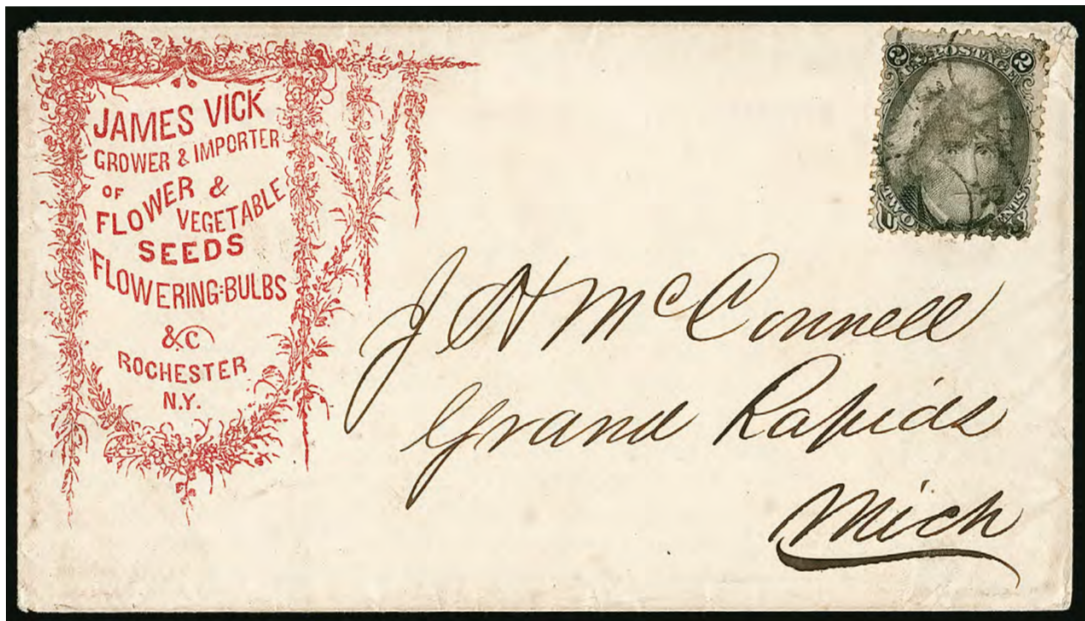 JAMES VICK
GROWER & IMPORTER
OF
FLOWER &
VEGETABLE
SEEDS
FLOWERING=BULBS
&C
ROCHESTER
N.Y.
2 U.S. POSTAGE 2
TWO CENTS
J H McConnell
Grand Rapids
Mich